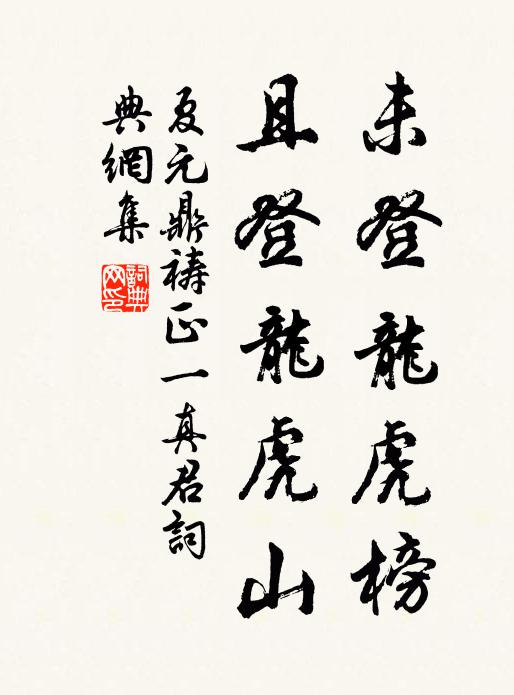 未登龍虎榜
且登龍虎山
夏元鼎禱正一真君詞
典網集
詞典网印